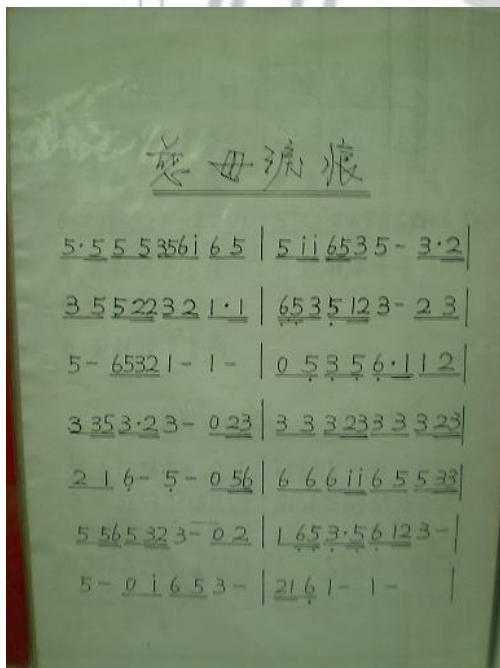 慈母淚痕
5·5 5 5 356i 6 5 | 5 i i 6535 - 3·2 |
3 5 5 22 3 2 1·1 | 653 5 12 3 - 2 3
5 - 6532 1 - 1 - | 0 5 3 5 6·1 1 2 |
3 35 3·2 3 - 0 23 | 3 3 3 23 3 3 3 23 |
2 1 6 - 5 - 0 56 | 6 6 6 i i 6 5 5 33 |
5 56 5 32 3 - 0 2 | 1 65 3·5 6 12 3 - |
5 - 0 i 6 5 3 - | 21 6 1 - 1 - |